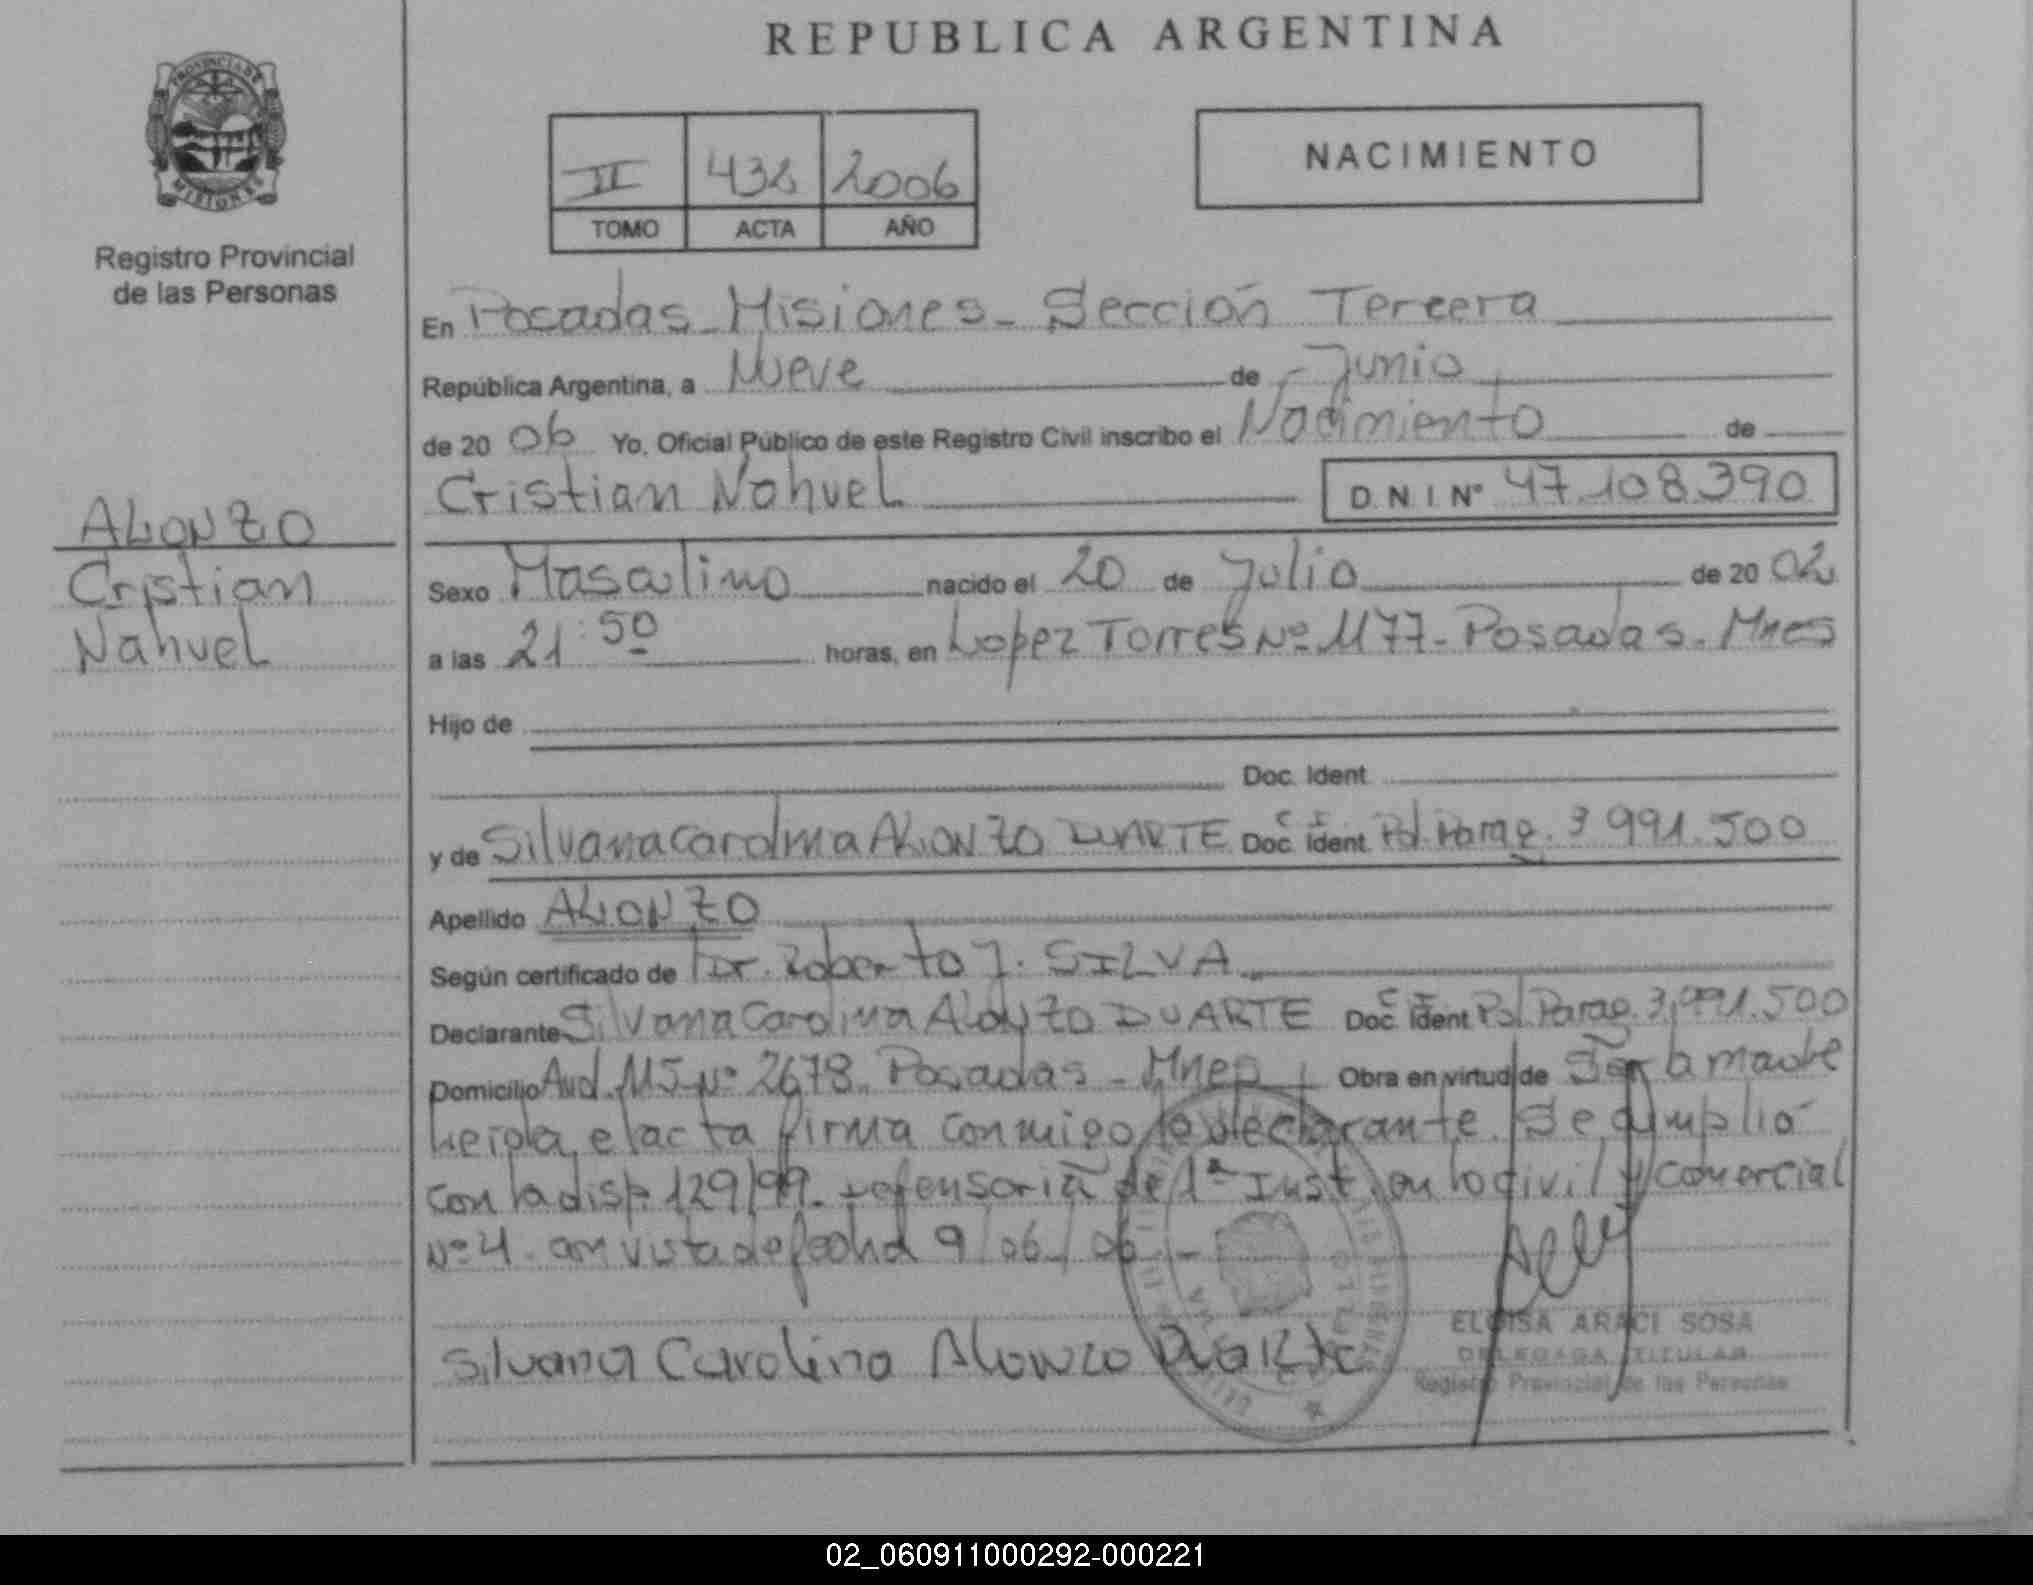 REPUBLICA ARGENTINA
PROVINCIA DE
MISIONES
Registro Provincial
de las Personas
II 438 2006
TOMO ACTA AÑO
NACIMIENTO
En Posadas - Misiones - Sección Tercera
República Argentina, a Nueve de - Junio
de 20 06 Yo, Oficial Público de este Registro Civil inscribo el Nacimiento de
Cristian Nahuel D.N.I Nº 47.108.390
ALONZO
Cristian
Nahuel
Sexo Masculino nacido el 20 de Julio de 20 02
a las 21:50 horas, en Lopez Torres Nº 1177 - Posadas - Mnes
Hijo de
Doc. Ident.
y de Silvana Carolina ALONZO DUARTE C I Doc. Ident. Pol. Parag. 3 991.500
Apellido ALONZO
Según certificado de Dr. Roberto J. SILVA
Declarante Silvana Carolina Alonzo DUARTE C I Doc. Ident Pol Parag. 3.991.500
Domicilio Avd. 115 Nº 2678. Posadas - Mnes Obra en virtud de Ser la madre
Leida el acta firma conmigo la declarante. Se cumplió
con la disp. 129/99. Defensoria de 1ª Inst. en lo civil y comercial
Nº 4. en vista de fecha 9/06/06. -
Silvana Carolina Alonzo Duarte
ELOISA ARACI SOSA
DELEGADA TITULAR
Registro Provincial de las Personas
02_060911000292-000221